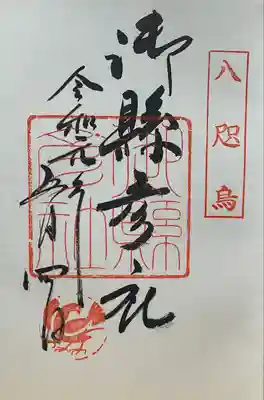 八咫烏
御縣彦社
令和元年五月四日